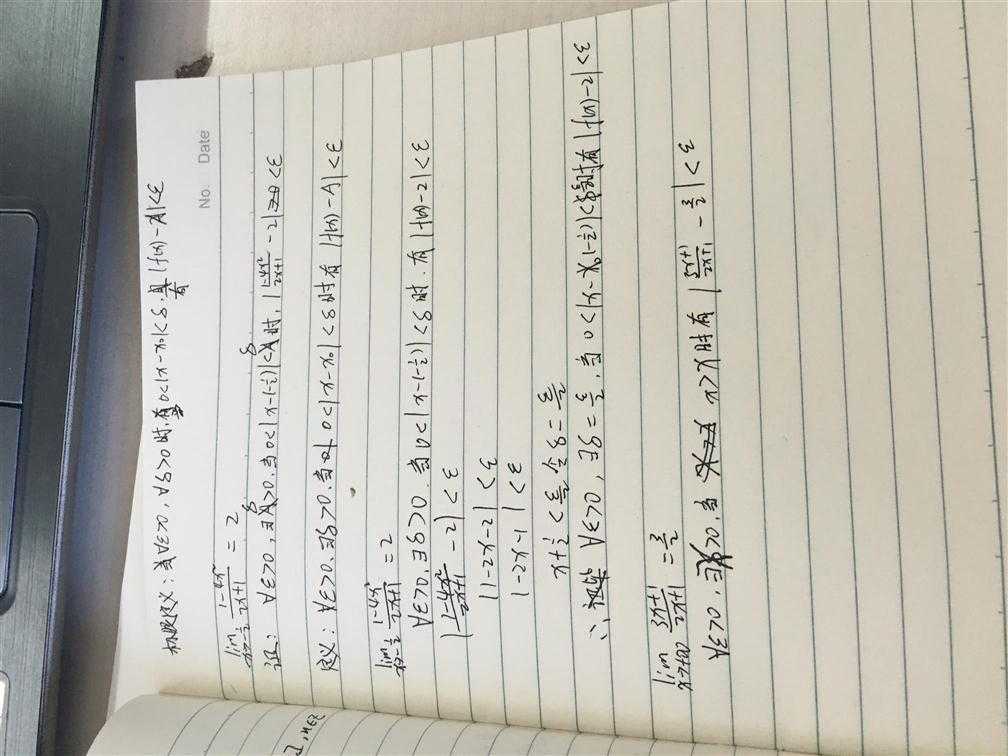 No. Date
极限定义: ∀ε>0, ∀δ>0时, 有0<|x-x₀|<δ, 有|f(x)-A|<ε
lim x→-1/2 (1-4x²)/(2x+1) = 2
证: ∀ε>0, ∃δ>0, 当0<|x-(-1/2)|<δ时, |(1-4x²)/(2x+1) - 2|<ε
定义: ∀ε>0, ∃δ>0, 当0<|x-x₀|<δ时有|f(x)-A|<ε
lim x→-1/2 (1-4x²)/(2x+1) = 2
∀ε>0, ∃δ>0, 当0<|x-(-1/2)|<δ时, 有|f(x)-2|<ε
|(1-4x²)/(2x+1) - 2|<ε
|1-2x-2|<ε
|-2x-1|<ε
x+1/2<ε/2 令δ=ε/2
∴ ∀ε>0, ∃δ=ε/2, 当0<|x-(-1/2)|<δ时有|f(x)-2|<ε
lim x→+∞ (5x+1)/(2x+1) = 5/2
∀ε>0, ∃X>0, 当 x>X时有|(5x+1)/(2x+1) - 5/2|<ε